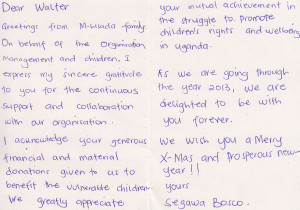 Dear Walter
Greetings from M-Lisada family.
On behalf of the Organisation,
management and children, I
express my sincere gratitude
to you for the continuous
support and collaboration
with our organisation.
I acknowledge your generous
financial and material
donations given to us to
benefit the vulnerable children
We greatly appreciate
your mutual achievement in
the struggle to promote
children's rights and wellbeing
in Uganda.
As we are going through
the year 2013, we are
delighted to be with
you forever.
We wish you a Merry
X-Mas and Prosperous new
year!!
yours
Segawa Bosco.